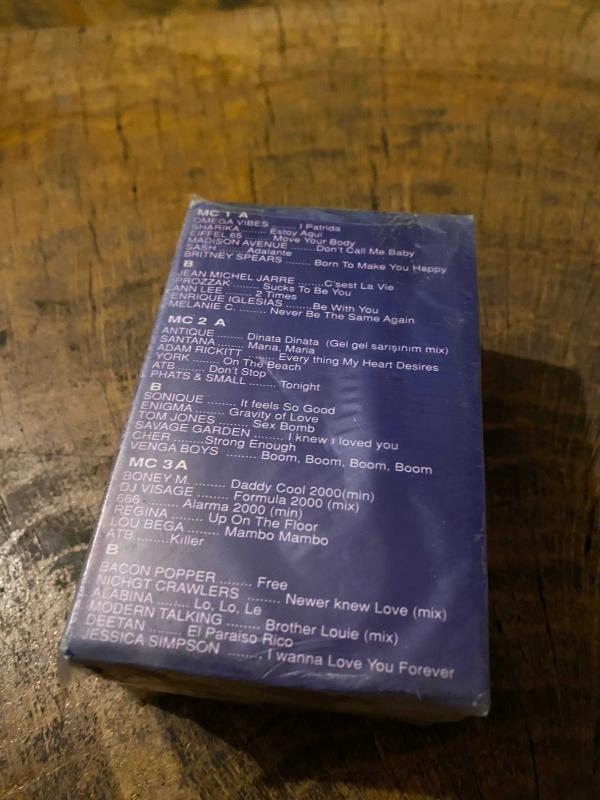 MC 1 A
OMEGA VIBES ......... I Patrida
SHARIKA ......... Estoy Aqui
EIFFEL 65 ........ Move Your Body
MADISON AVENUE ........Don't Call Me Baby
SASH ........ Adalante
BRITNEY SPEARS ......... Born To Make You Happy
B
JEAN MICHEL JARRE ........C'sest La Vie
PROZZAK ........ Sucks To Be You
ANN LEE ........ 2 Times
ENRIQUE IGLESIAS ........Be With You
MELANIE C. ........ Never Be The Same Again
MC 2 A
ANTIQUE ........ Dinata Dinata (Gel gel sarışınım mix)
SANTANA ........ Maria, Maria
ADAM RICKITT ........ Every thing My Heart Desires
YORK ........ On The Beach
ATB........ Don't Stop
PHATS & SMALL ........ Tonight
B
SONIQUE ........ It feels So Good
ENIGMA ........ Gravity of Love
TOM JONES ........ Sex Bomb
SAVAGE GARDEN ........ I knew i loved you
CHER ........Strong Enough
VENGA BOYS ........ Boom, Boom, Boom, Boom
MC 3 A
BONEY M. ........ Daddy Cool 2000(min)
DJ VISAGE ........ Formula 2000 (mix)
666 ........ Alarma 2000 (min)
REGINA ........ Up On The Floor
LOU BEGA ........ Mambo Mambo
ATB.........Killer
B
BACON POPPER ........ Free
NICHGT CRAWLERS ........ Newer knew Love (mix)
ALABINA ........ Lo, Lo, Le
MODERN TALKING ........ Brother Louie (mix)
DEETAN ........ El Paraiso Rico
JESSICA SIMPSON ........ I wanna Love You Forever